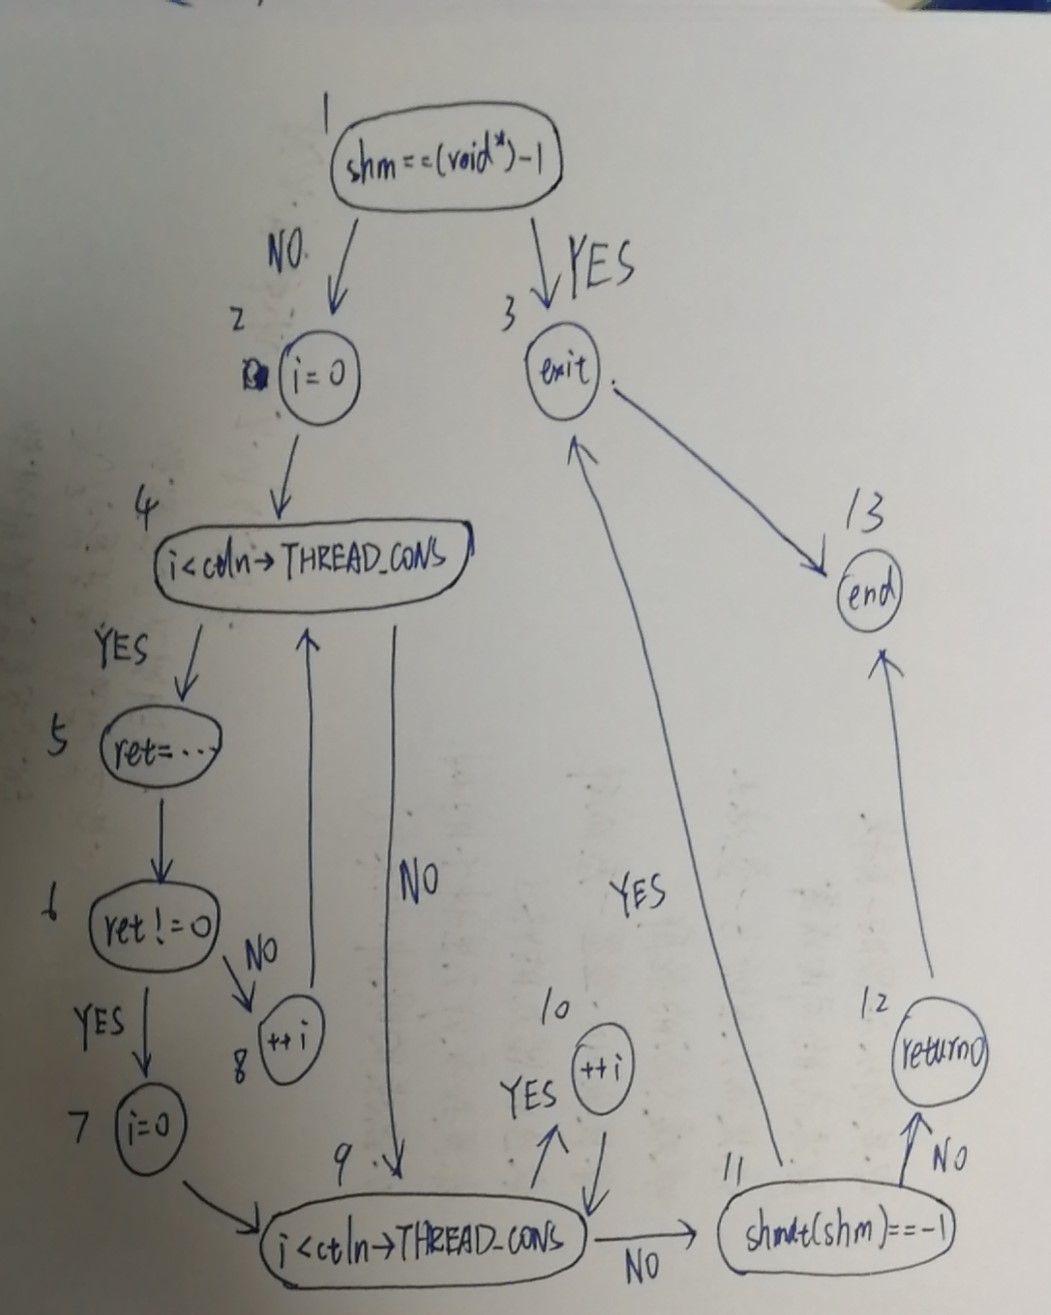 1
shm==(void*)-1
NO.
YES
2
i=0
3
exit
4
i<ctln→THREAD_CONS
13
end
YES
5
ret=...
NO
YES
6
ret!=0
NO
YES
8
++i
7
i=0
10
++i
YES
12
return0
9
i<ctln→THREAD_CONS
NO
11
shmdt(shm)==-1
NO